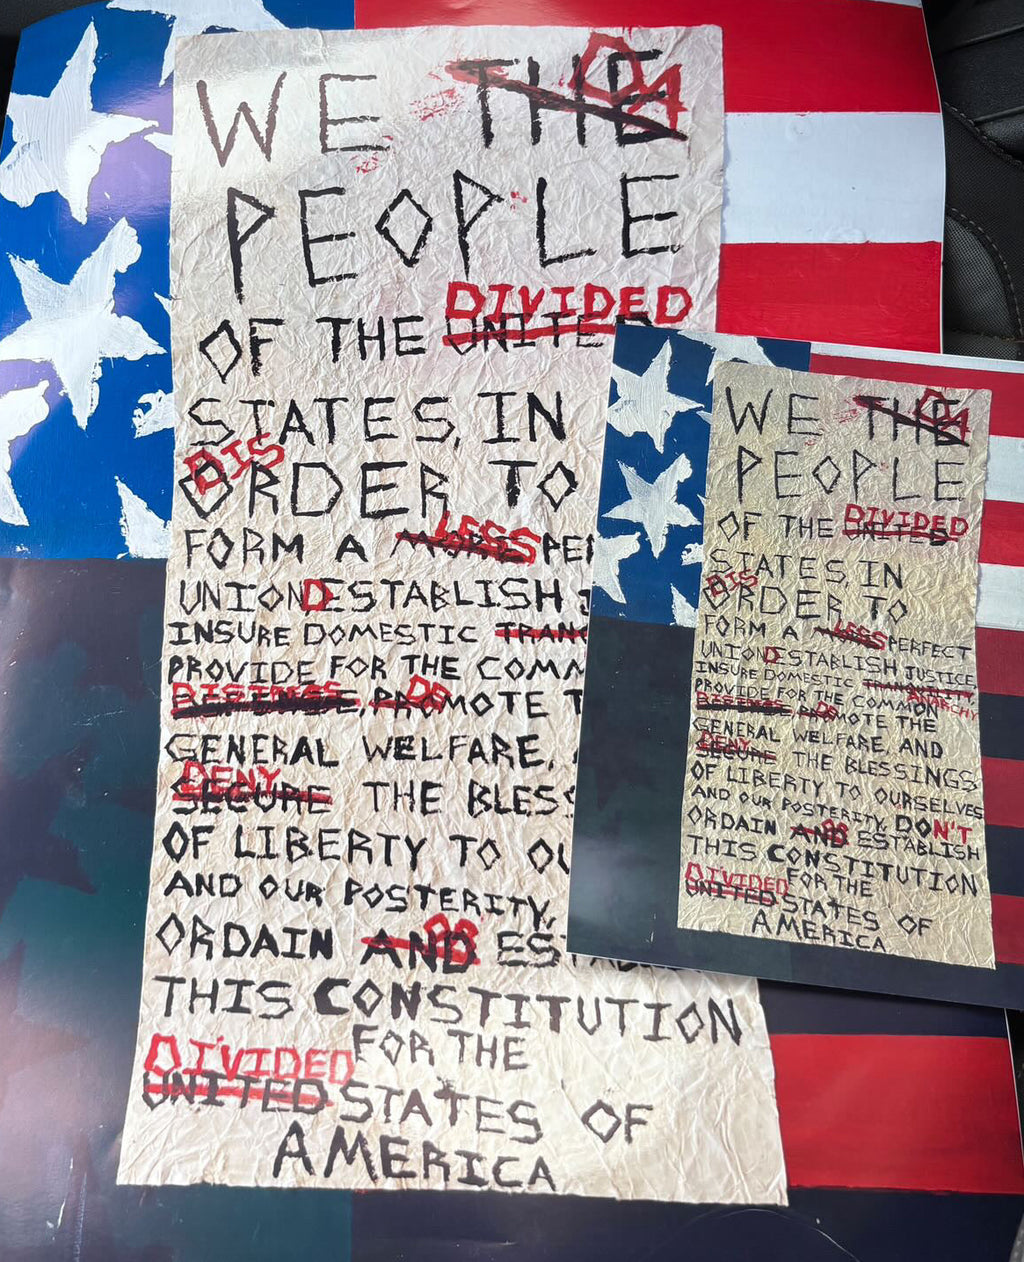 WE THE DA
PEOPLE
DIVIDED
OF THE UNITED
STATES, IN
DIS
ORDER TO
LESS
FORM A MORE PE
UNIONDESTABLISH
INSURE DOMESTIC TRAN
PROVIDE FOR THE COMM
DEFENSE, PROMOTE T
DE
GENERAL WELFARE,
DENY
SECURE THE BLESS
OF LIBERTY TO OU
AND OUR POSTERITY,
OR
ORDAIN AND ES
THIS CONSTITUTION
FOR THE
DIVIDED
UNITED STATES OF
AMERICA
WE THE DA
PEOPLE
DIVIDED
OF THE UNITED
STATES, IN
DIS
ORDER TO
LESS
FORM A MORE PERFECT
UNIONDESTABLISH JUSTICE,
INSURE DOMESTIC TRANQUILITY,
ANARCHY
PROVIDE FOR THE COMMON
DEFENSE, PROMOTE THE
DE
GENERAL WELFARE, AND
DENY
SECURE THE BLESSINGS
OF LIBERTY TO OURSELVES
AND OUR POSTERITY, DON'T
OR
ORDAIN AND ESTABLISH
THIS CONSTITUTION
FOR THE
DIVIDED
UNITED STATES OF
AMERICA